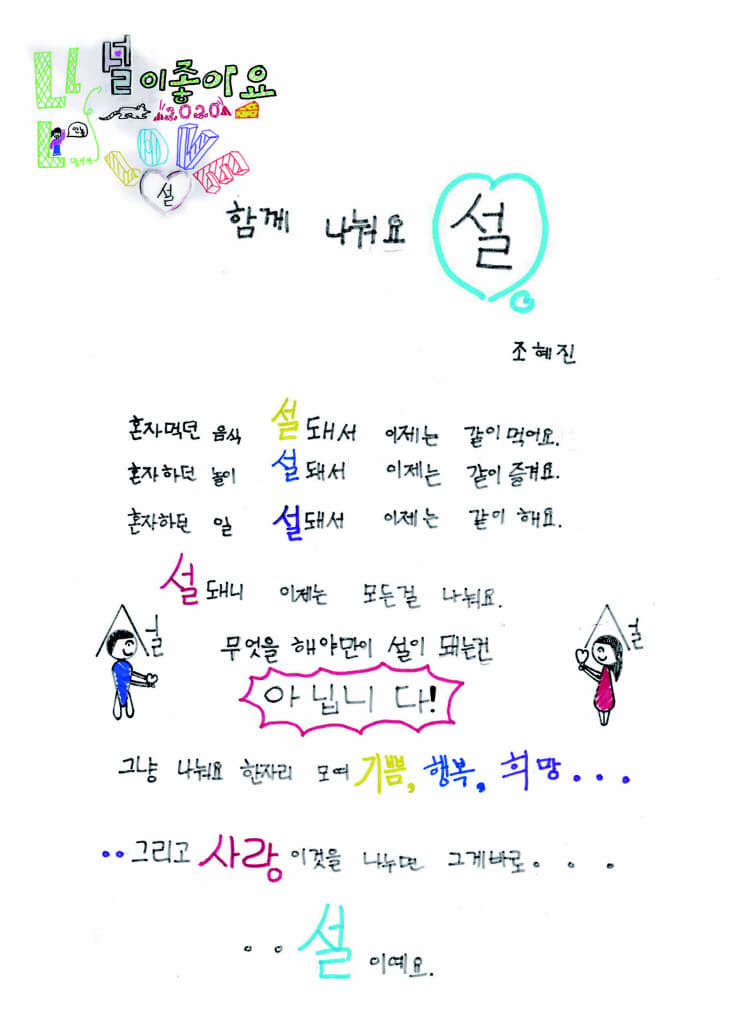 나 널이좋아요
2020
나
LOVE
설
함께 나눠요 설
조혜진
혼자먹던 음식 설돼서 이제는 같이먹어요.
혼자하던 놀이 설돼서 이제는 같이즐겨요.
혼자하던 일 설돼서 이제는 같이 해요.
설돼니 이제는 모든걸 나눠요.
설
설
무엇을 해야만이 설이 돼는건
아닙니다!
그냥 나눠요 한자리 모여 기쁨, 행복, 희망...
..그리고 사랑 이것을 나누면 그게바로...
..설이예요.